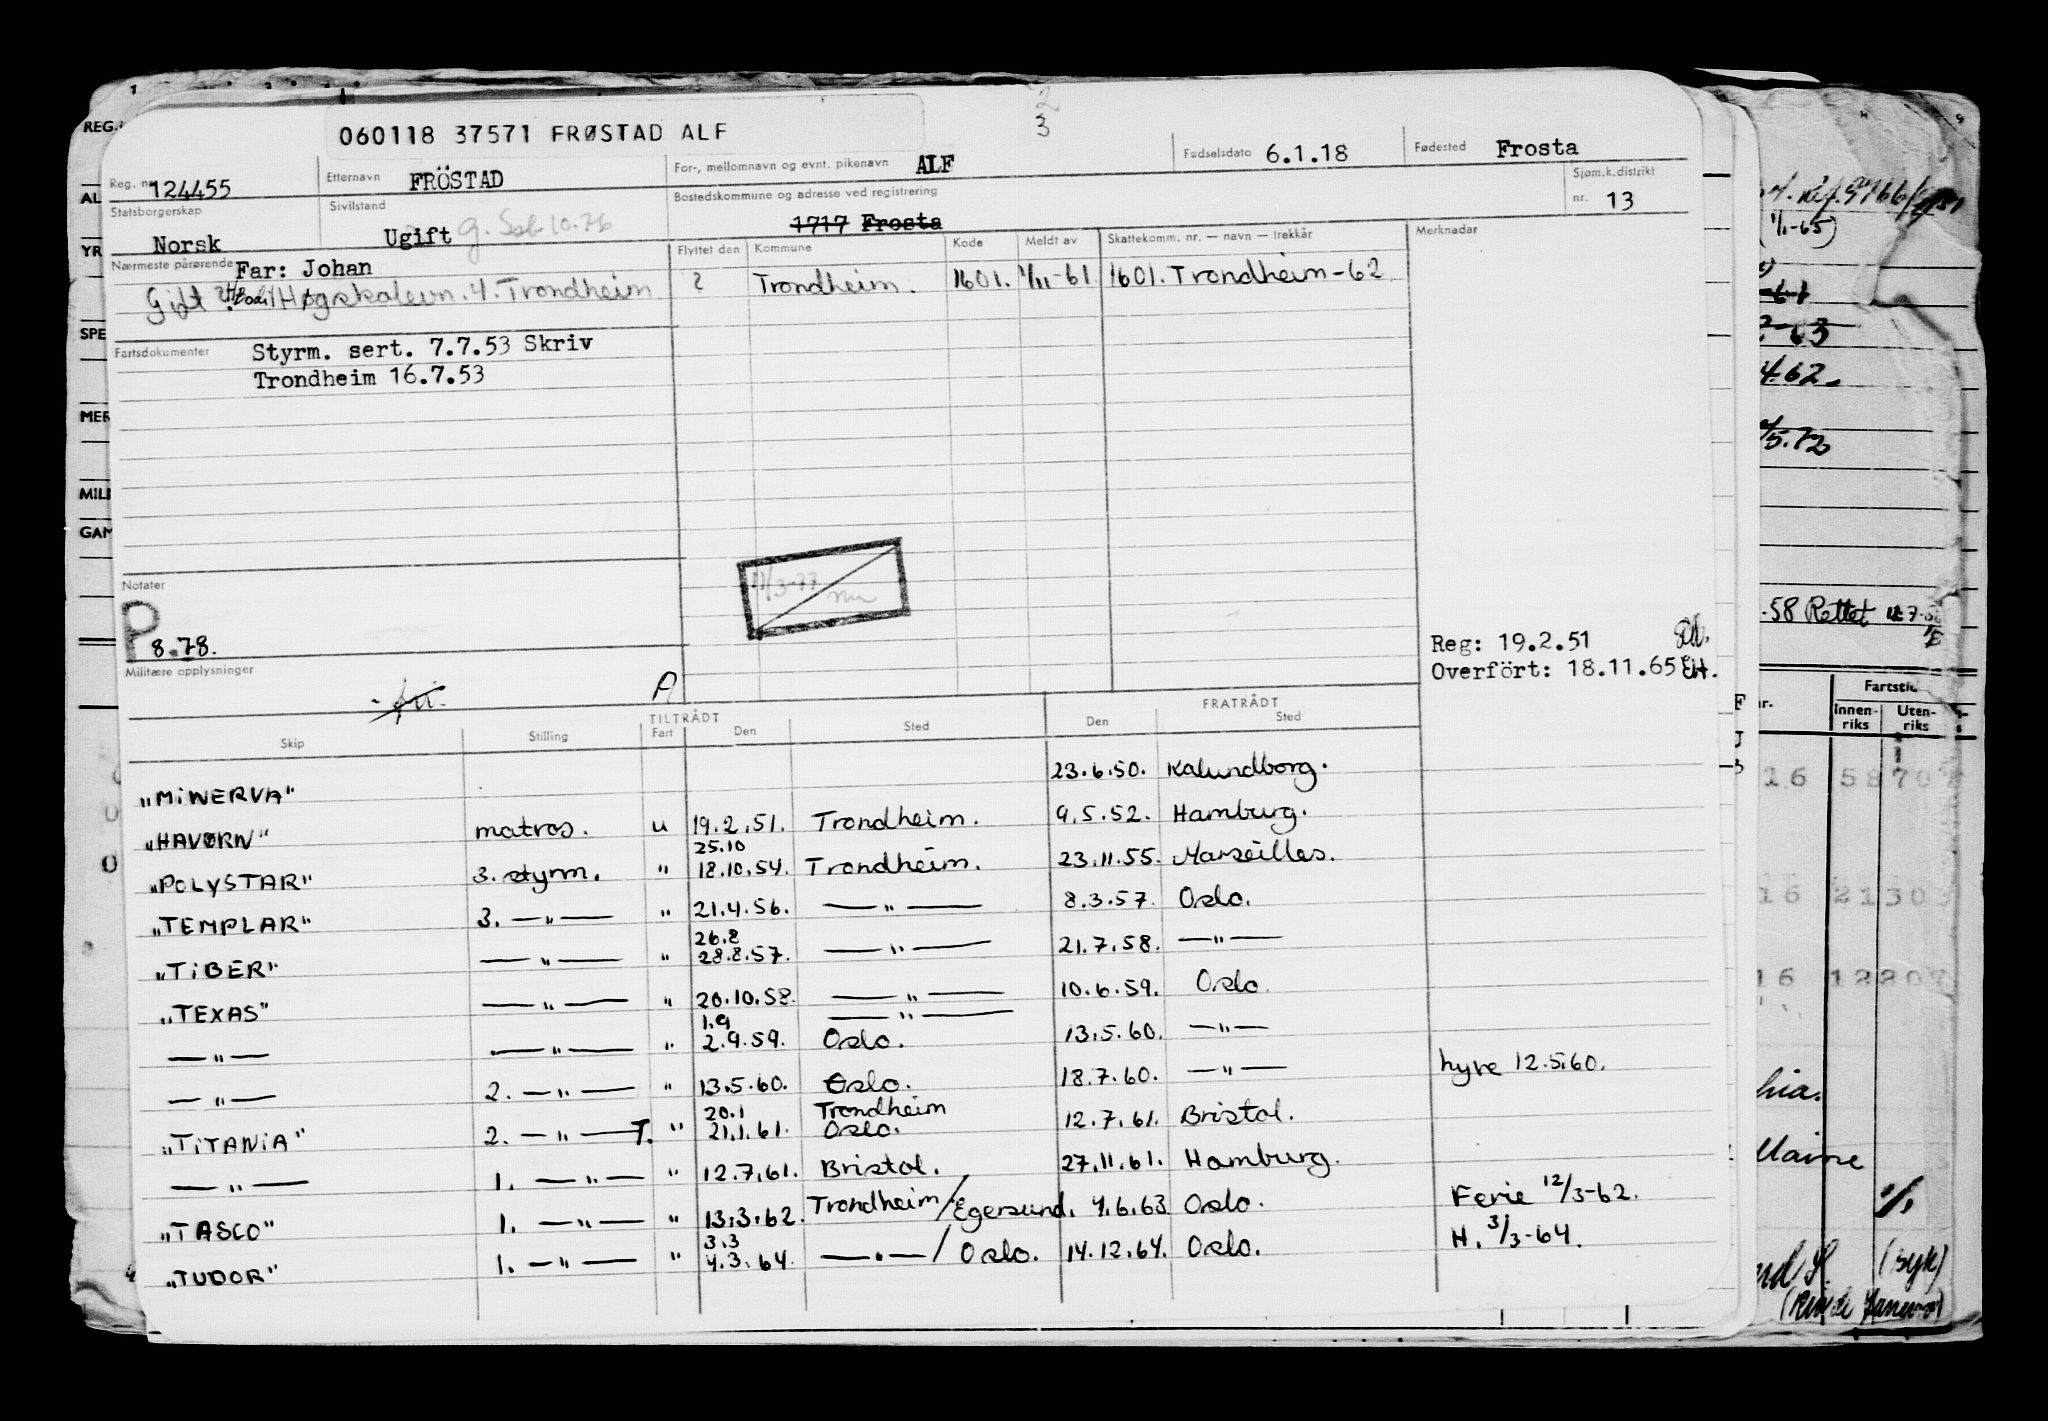 2
3
060118 37571 FRØSTAD ALF
Reg. nr. 124455 Etternavn FRÖSTAD For-, mellomnavn og evnt. pikenavn ALF Fødselsdato 6.1.18 Fødested Frosta
Statsborgerskap Norsk Sivilstand Ugift Bostedskommune og adresse ved registrering 1717 Frosta Sjøm.k.distrikt nr. 13
Nærmeste pårørende Far: Johan Flyttet den Kommune Kode Meldt av Skattekomm. nr. — navn — trekkår Merknader
Gift Høgskolevn. 4. Trondheim ? Trondheim. 1601. 1/11-61 1601. Trondheim-62
Fartsdokumenter Styrm. sert. 7.7.53 Skriv
Trondheim 16.7.53
11/3-77
Notater
P 8.78.
Reg: 19.2.51
Overfört: 18.11.65 EH.
Militære opplysninger
A
TILTRÅDT FRATRÅDT
Skip Stilling Fart Den Sted Den Sted
"MINERVA" 23.6.50. Kalundborg.
"HAVØRN" matros. u 19.2.51. Trondheim. 9.5.52. Hamburg.
25.10
"POLYSTAR" 3. styrm. " 18.10.54. Trondheim. 23.11.55. Marseilles.
"TEMPLAR" 3. —"— " 21.4.56. —"— 8.3.57. Oslo.
26.8
"TIBER" —"— " 28.8.57. —"— 21.7.58. —"—
"TEXAS" —"— " 20.10.58. —"— 10.6.59. Oslo.
1.9 —"—
—"— —"— " 2.9.59. Oslo. 13.5.60. —"—
—"— 2. —"— " 13.5.60. Oslo. 18.7.60. —"— hyre 12.5.60.
20.1 Trondheim
"TITANIA" 2. —"— T. " 21.1.61. Oslo. 12.7.61. Bristol.
—"— 1. —"— " 12.7.61. Bristol. 27.11.61. Hamburg.
"TASCO" 1. —"— " 13.3.62. Trondheim/Egersund. 4.6.63 Oslo. Ferie 12/3-62.
3.3
"TUDOR" 1. —"— " 4.3.64. —"—/Oslo. 14.12.64. Oslo. H. 3/3-64.
REG.
AL
YR
SPE
MER
MILI
GAM
(1/1-65)
2-63
4.62.
/5.72
.58 Rettet
Fartstid
Innen-riks Uten-riks
16 5870
16 2130
16 1220
hia.
Maine
1/1
(syk)
(Rio de Janeiro)